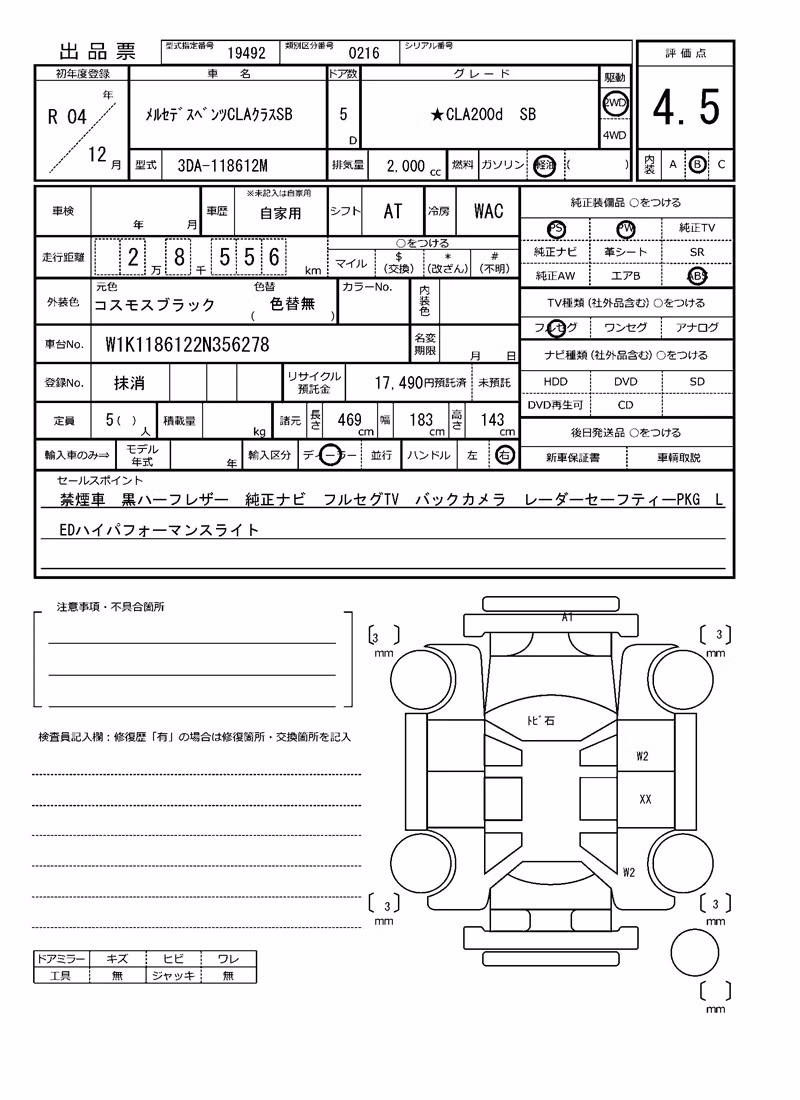 出品票 型式指定番号 19492 類別区分番号 0216 シリアル番号
評価点
4.5
内装 A B C
初年度登録 車名 ドア数 グレード 駆動
R 04 年 12 月 メルセデスベンツCLAクラスSB 5 D ★CLA200d SB 2WD 4WD
型式 3DA-118612M 排気量 2,000 cc 燃料 ガソリン 軽油 ( )
車検 年 月 車歴 ※未記入は自家用 自家用 シフト AT 冷房 WAC
走行距離 2 万 8 千 5 5 6 km ○をつける マイル $ (交換) * (改ざん) # (不明)
外装色 元色 コスモスブラック 色替 色替無 ( ) カラーNo. 内装色
車台No. W1K1186122N356278 名変期限 月 日
登録No. 抹消 リサイクル預託金 17,490円預託済 未預託
定員 5( ) 人 積載量 kg 諸元 長さ 469 cm 幅 183 cm 高さ 143 cm
輸入車のみ⇒ モデル年式 年 輸入区分 ディーラー 並行 ハンドル 左 右
純正装備品 ○をつける
PS PW 純正TV
純正ナビ 革シート SR
純正AW エアB ABS
TV種類(社外品含む)○をつける
フルセグ ワンセグ アナログ
ナビ種類(社外品含む)○をつける
HDD DVD SD
DVD再生可 CD
後日発送品 ○をつける
新車保証書 車輌取説
セールスポイント
禁煙車 黒ハーフレザー 純正ナビ フルセグTV バックカメラ レーダーセーフティーPKG L
EDハイパフォーマンスライト
注意事項・不具合箇所
検査員記入欄：修復歴「有」の場合は修復箇所・交換箇所を記入
ドアミラー キズ ヒビ ワレ
工具 無 ジャッキ 無
A1
3 mm
3 mm
トビ石
W2
XX
W2
3 mm
3 mm
mm